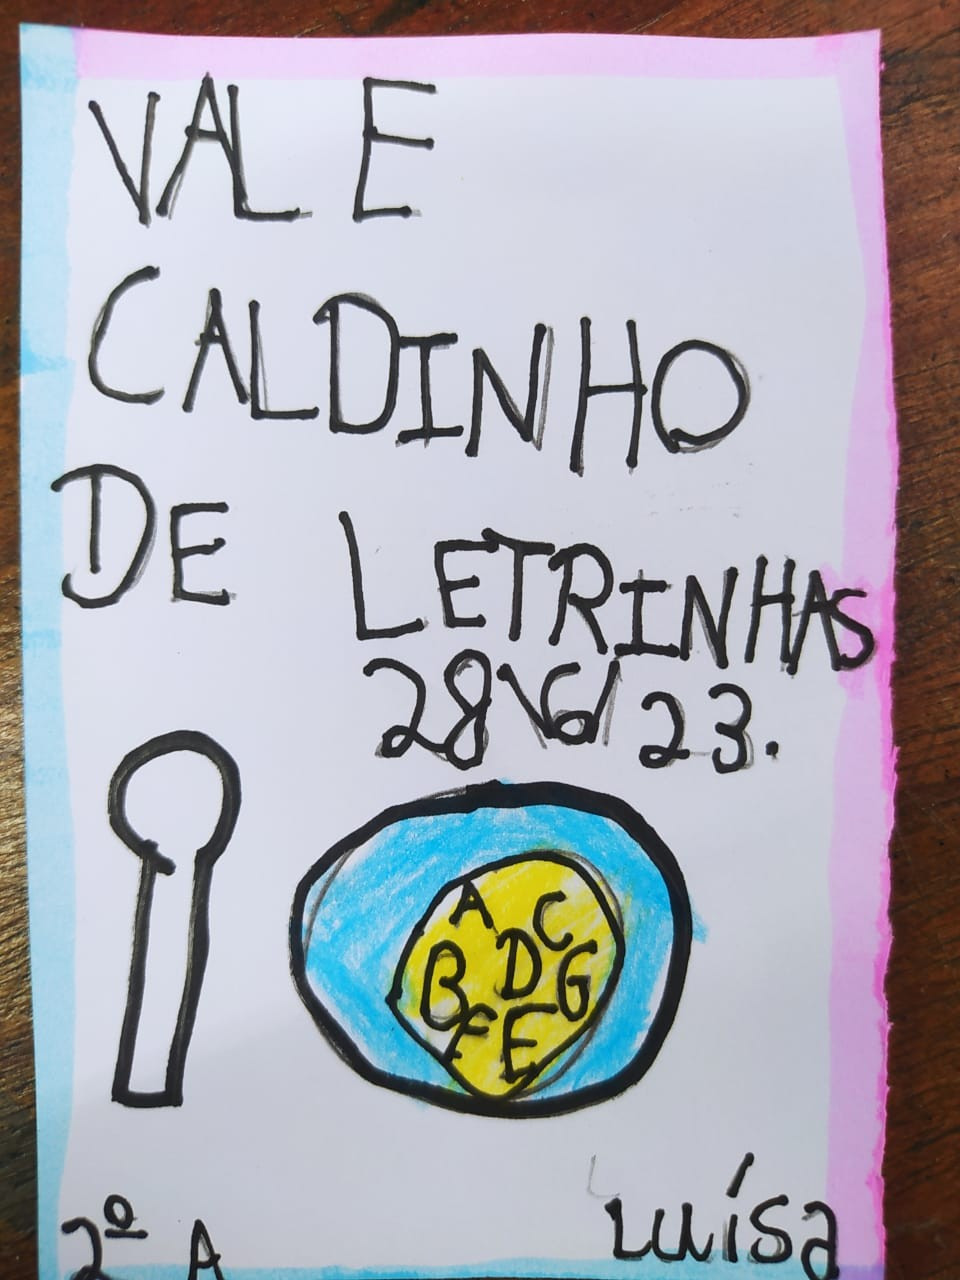 VALE
CALDINHO
DE LETRINHAS
28/6/23.
A C
B D G
F E
2º A Luísa